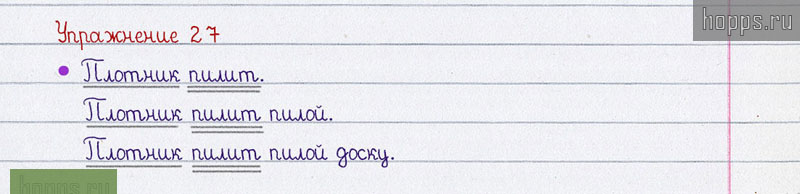 hopps.ru
Упражнение 27
• Плотник пилит.
Плотник пилит пилой.
Плотник пилит пилой доску.
hopps.ru